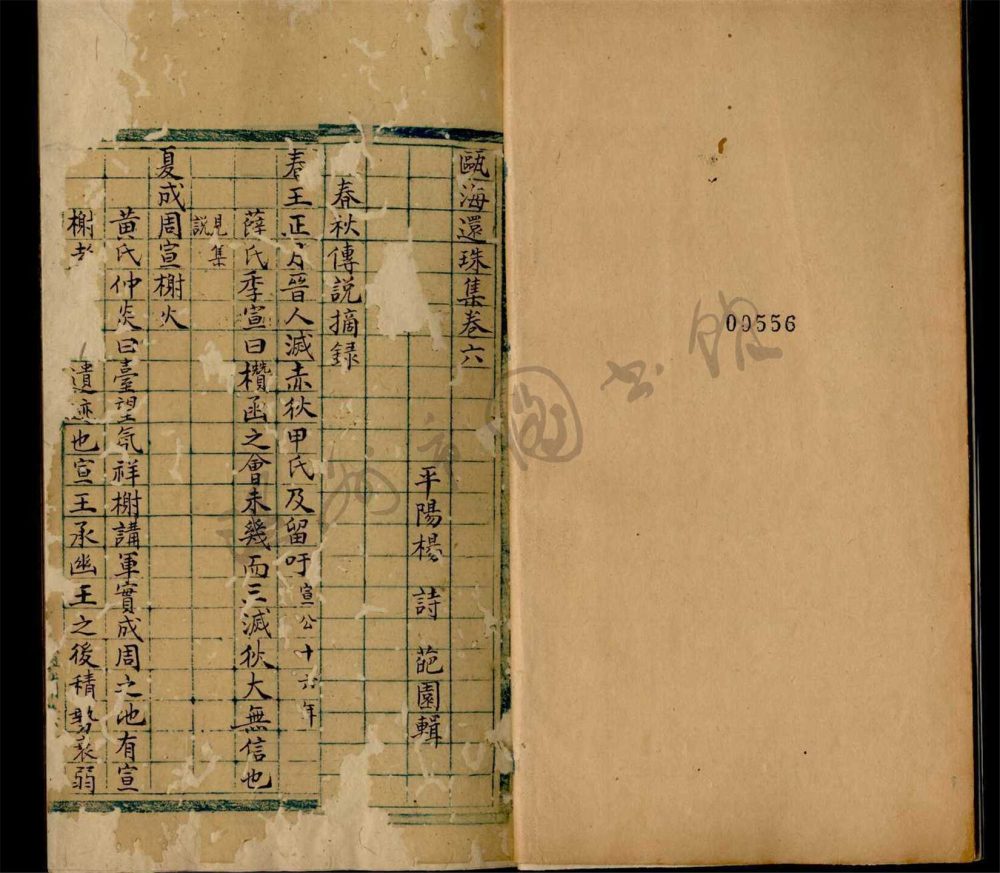 甌海還珠集卷六
平陽楊 詩 葩園輯
春秋傳說摘録
春王正月晉人滅赤狄甲氏及留吁宣公十六年
薛氏季宣曰欑函之會未幾而三滅狄大無信也
見集
說
夏成周宣榭火
黃氏仲炎曰臺望氛祥榭講軍實成周之地有宣
榭者 遺迹也宣王承幽王之後積勢衰弱
00556
圖書館